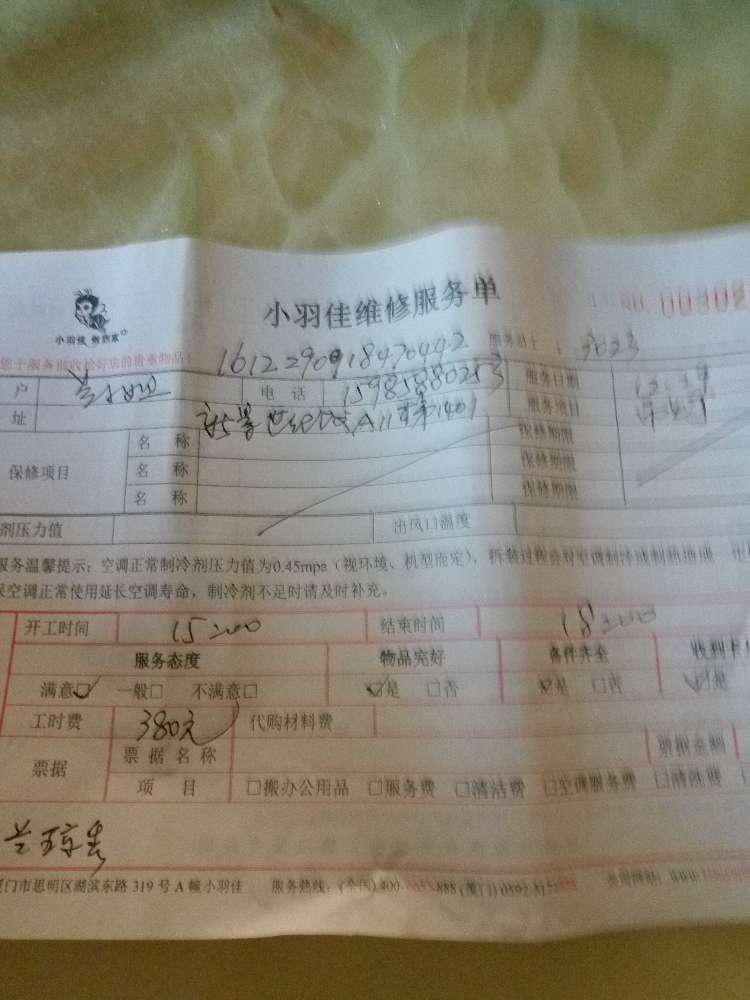 小羽佳维修服务单
NO. 00808
小羽佳 做到家
您于服务前收拾好店的贵重物品！
1612290918470442
3023
户 电 话 15985880253 服务日期 12.29
址 A11 1401 服务项目
保修项目 名 称 保修期限
名 称 保修期限
名 称 保修期限
剂压力值 出风口温度
服务温馨提示：空调正常制冷剂压力值为0.45mpa（视环境、机型而定），拆装过程会对空调制冷或制热造成
空调正常使用延长空调寿命，制冷剂不足时请及时补充。
开工时间 15:00 结束时间 18:00
服务态度 物品完好 备件齐全
满意☑ 一般□ 不满意□ ☑是 □否 ☑是 □否 ☑是
工时费 380元 代购材料费
票据 票据名称 票据金额
项 目 □搬办公用品 □服务费 □清洁费 □空调服务费 □清洗费
门市思明区湖滨东路 319 号 A 幢小羽佳 服务热线：(全国) 400